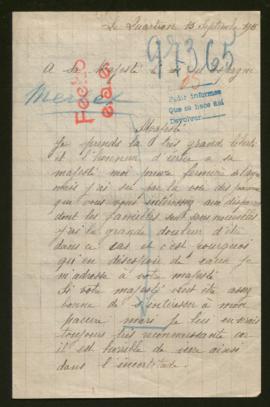 Le 15 Septembre 191
97365
A Sa Majesté
Pedir informes
Que se hace así
Devolver
Majesté
Je prends la plus grande liberté
et l'honneur d'écrire a sa
majesté moi pauvre
mais j'ai su par la voie des journaux
que vous vous intéressez aux disparus
dont les familles sont sans nouvelles
j'ai la grande douleur d'être
dans ce cas et c'est pourquoi
qu'en désespoir de cause je
m'adresse à votre majesté
Si votre majesté veut être assez
bonne de s'intéresser à mon
pauvre mari je lui en serais
toujours très reconnaissante car
il est terrible de vivre ainsi
dans l'incertitude.